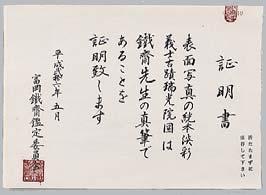 証明書
表面写真の純本淡彩
義士古蹟瑞光院図は
鐵齋先生の真筆で
あることを
証明致します
平成弐拾六年五月
富岡鐵齋鑑定委員会
折たたまずに
保存して下さい